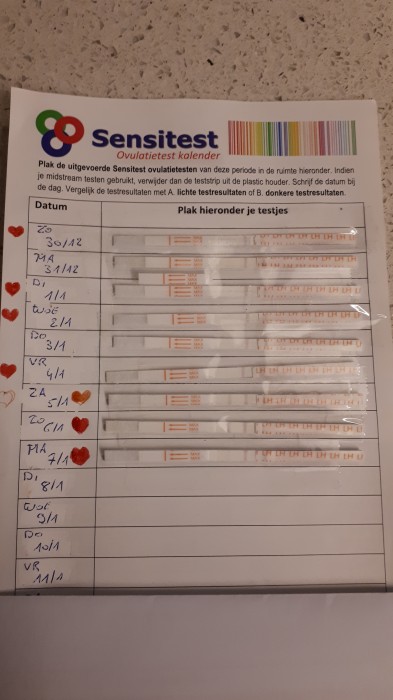 Sensitest
Ovulatietest kalender
Plak de uitgevoerde Sensitest ovulatietesten van deze periode in de ruimte hieronder. Indien
je midstream testen gebruikt, verwijder dan de teststrip uit de plastic houder. Schrijf de datum bij
de dag. Vergelijk de testresultaten met A. lichte testresultaten of B. donkere testresultaten.
Datum Plak hieronder je testjes
ZO
30/12
MA
31/12
DI
1/1
WOE
2/1
DO
3/1
VR
4/1
ZA
5/1
ZO
6/1
MA
7/1
DI
8/1
WOE
9/1
DO
10/1
VR
11/1